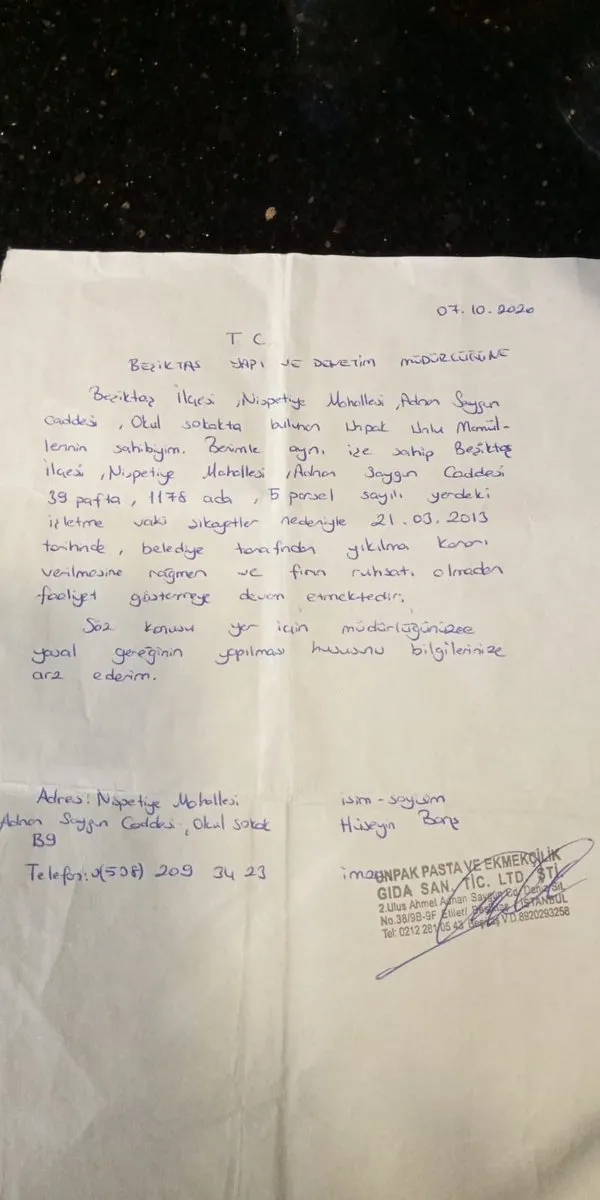 07.10.2020
T C
BEŞİKTAŞ YAPI VE DENETİM MÜDÜRLÜĞÜNE
Beşiktaş İlçesi, Nispetiye Mahallesi, Adnan Saygun
Caddesi, Okul sokakta bulunan Unpak Unlu Mamül-
lerinin sahibiyim. Benimle aynı işe sahip Beşiktaş
ilçesi, Nispetiye Mahallesi, Adnan Saygun Caddesi
39 pafta, 1178 ada, 5 parsel sayılı yerdeki
işletme vaki şikayetler nedeniyle 21.03.2013
tarihinde, belediye tarafından yıkılma kararı
verilmesine rağmen ve fırın ruhsatı olmadan
faaliyet göstermeye devam etmektedir.
Söz konusu yer için müdürlüğünüzce
yasal gereğinin yapılması hususunu bilgilerinize
arz ederim.
Adres: Nispetiye Mahallesi
Adnan Saygun Caddesi, Okul sokak
B9
Telefon: 0(538) 209 34 23
isim-soyisim
Hüseyin Barış
imza
UNPAK PASTA VE EKMEKÇİLİK
GIDA SAN. TİC. LTD. ŞTİ.
2.Ulus Ahmet Adnan Saygun Cd. Deniz Sit.
No.38/9B-9F Etiler/ Beşiktaş / İSTANBUL
Tel: 0212 281 05 43 Beşiktaş V.D.8920293258